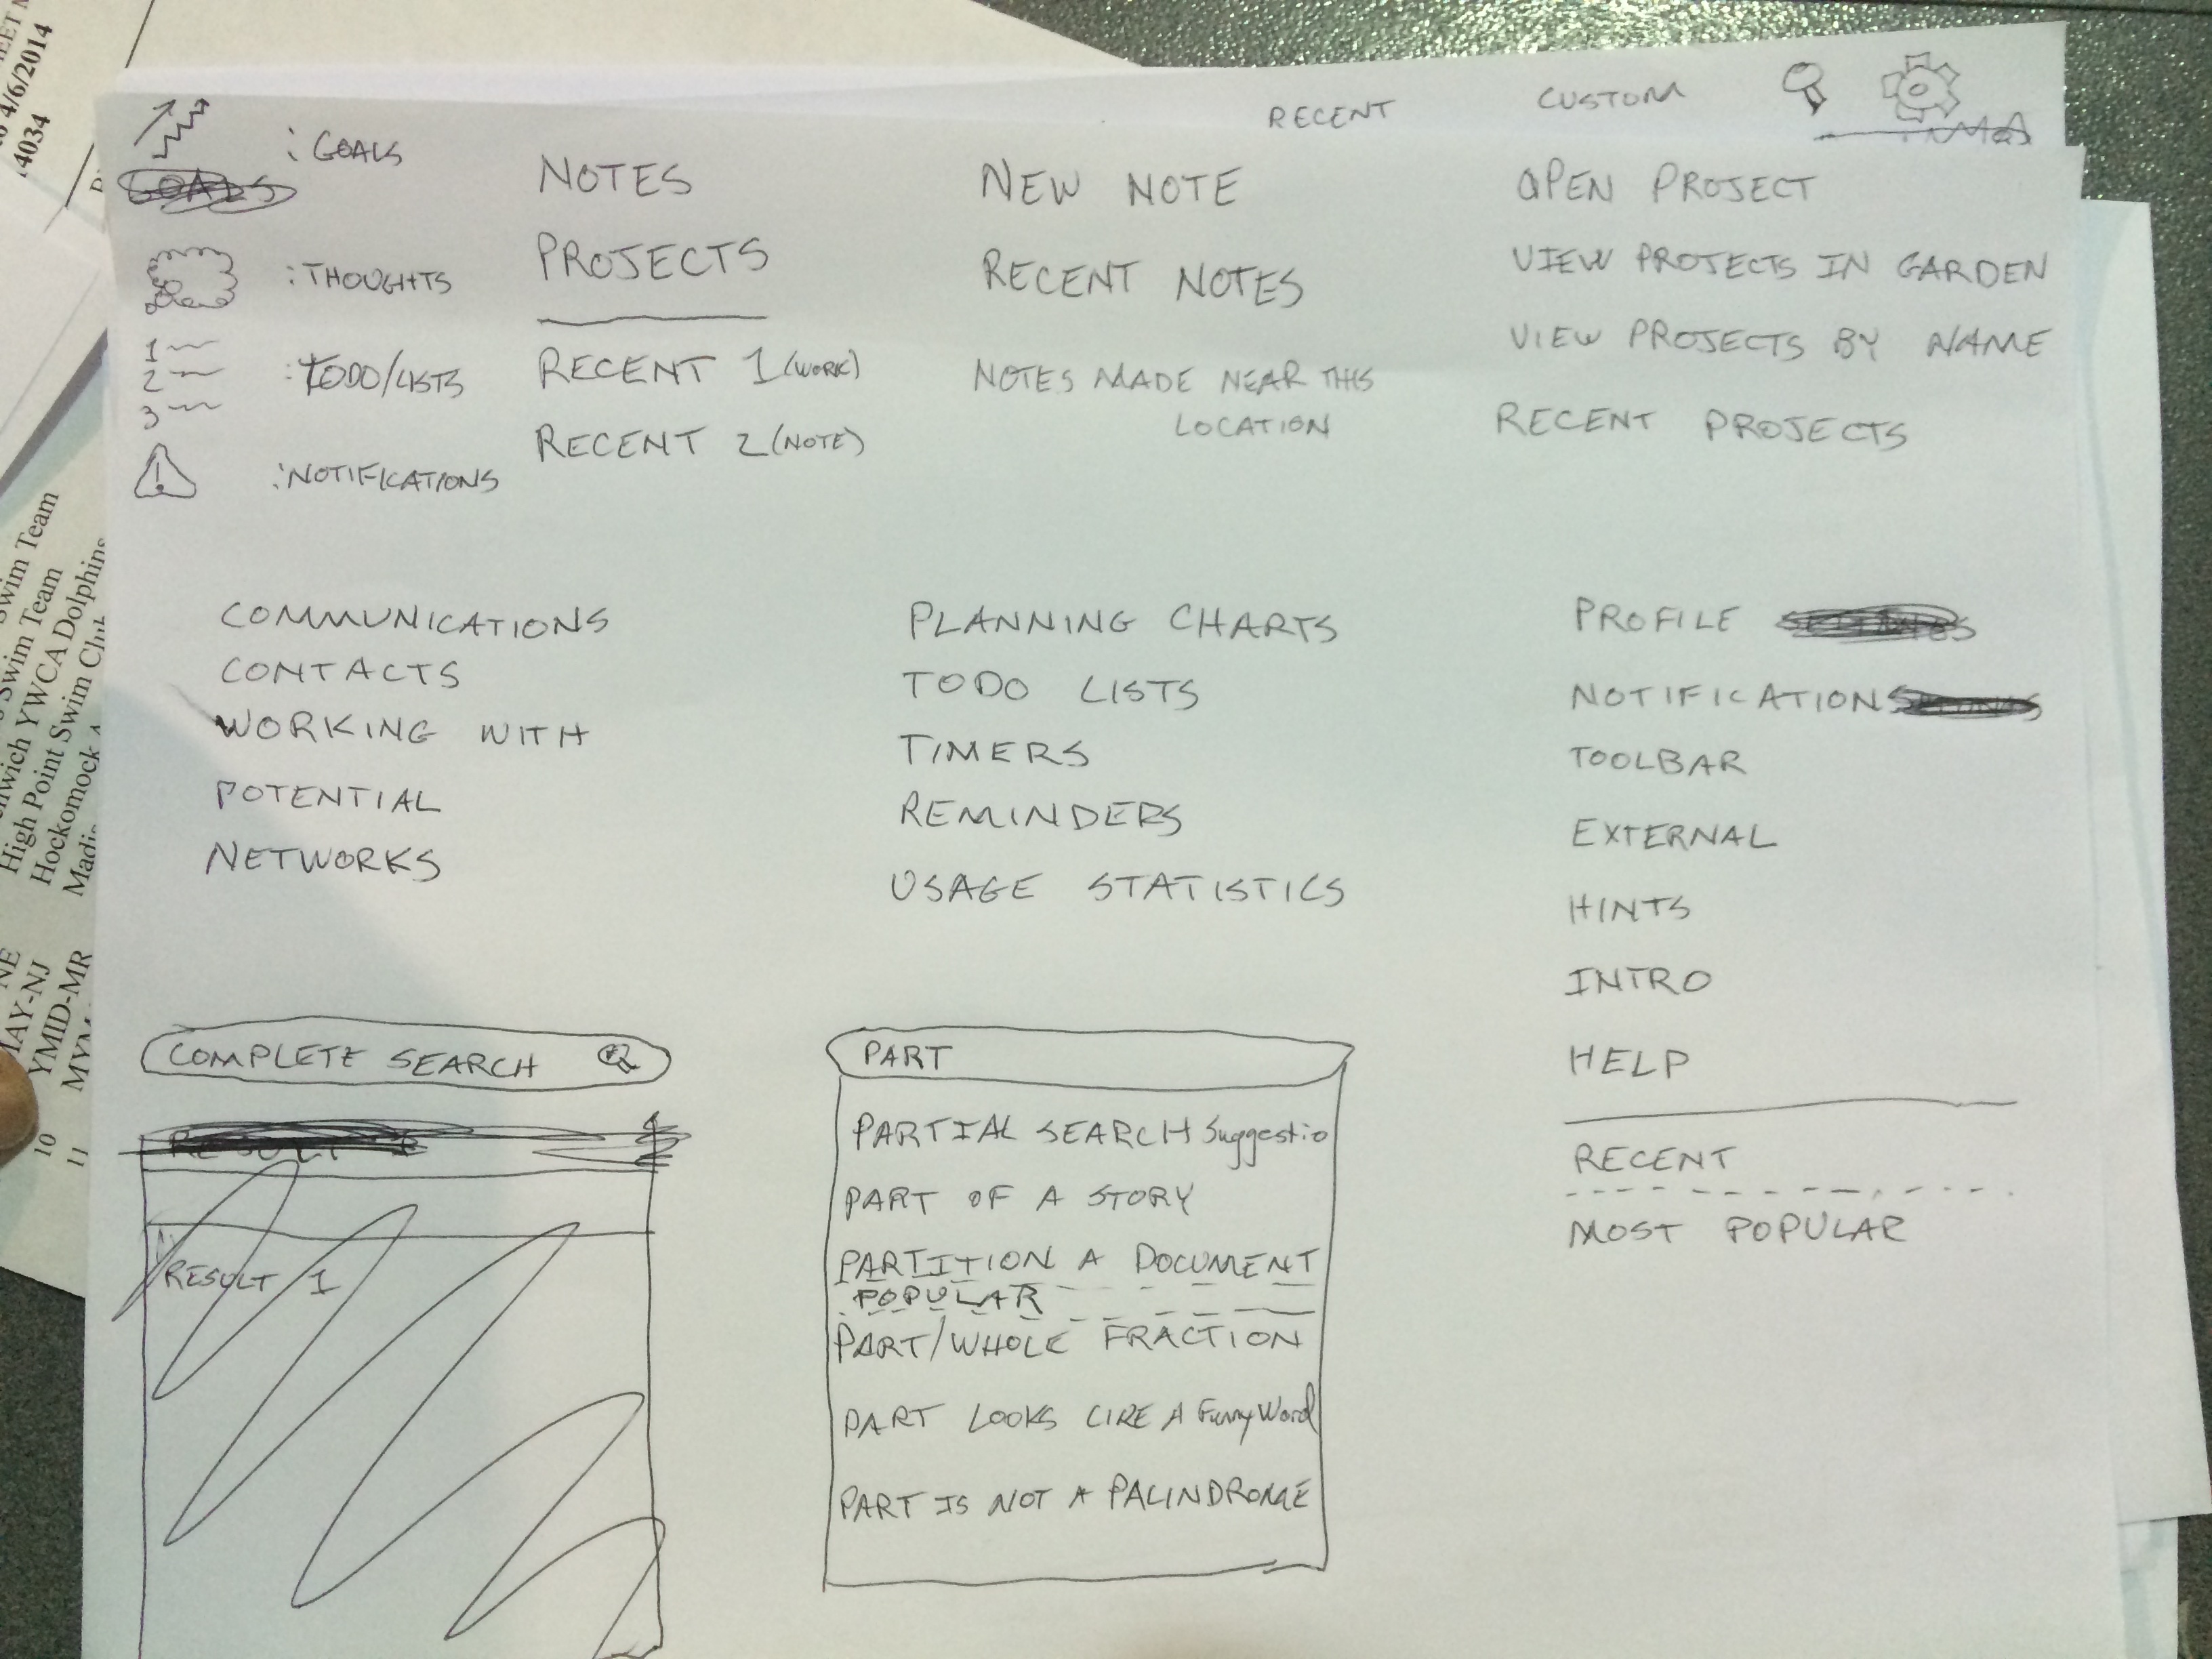 RECENT
CUSTOM
: GOALS
: THOUGHTS
1
2
3
: TODO/LISTS
!
: NOTIFICATIONS
NOTES
PROJECTS
RECENT 1 (WORK)
RECENT 2 (NOTE)
NEW NOTE
RECENT NOTES
NOTES MADE NEAR THIS
LOCATION
OPEN PROJECT
VIEW PROJECTS IN GARDEN
VIEW PROJECTS BY NAME
RECENT PROJECTS
COMMUNICATIONS
CONTACTS
WORKING WITH
POTENTIAL
NETWORKS
PLANNING CHARTS
TODO LISTS
TIMERS
REMINDERS
USAGE STATISTICS
PROFILE
NOTIFICATIONS
TOOLBAR
EXTERNAL
HINTS
INTRO
HELP
RECENT
MOST POPULAR
COMPLETE SEARCH
RESULT 1
RESULT 1
PART
PARTIAL SEARCH Suggestio
PART OF A STORY
PARTITION A DOCUMENT
POPULAR
PART/WHOLE FRACTION
PART LOOKS LIKE A Funny Word
PART IS NOT A PALINDROME
4/6/2014
14034
Swim Team
Swim Team
YWCA Dolphins
High Point Swim Club
Hockomock A
MAY-NJ
YMID-MR
10
11